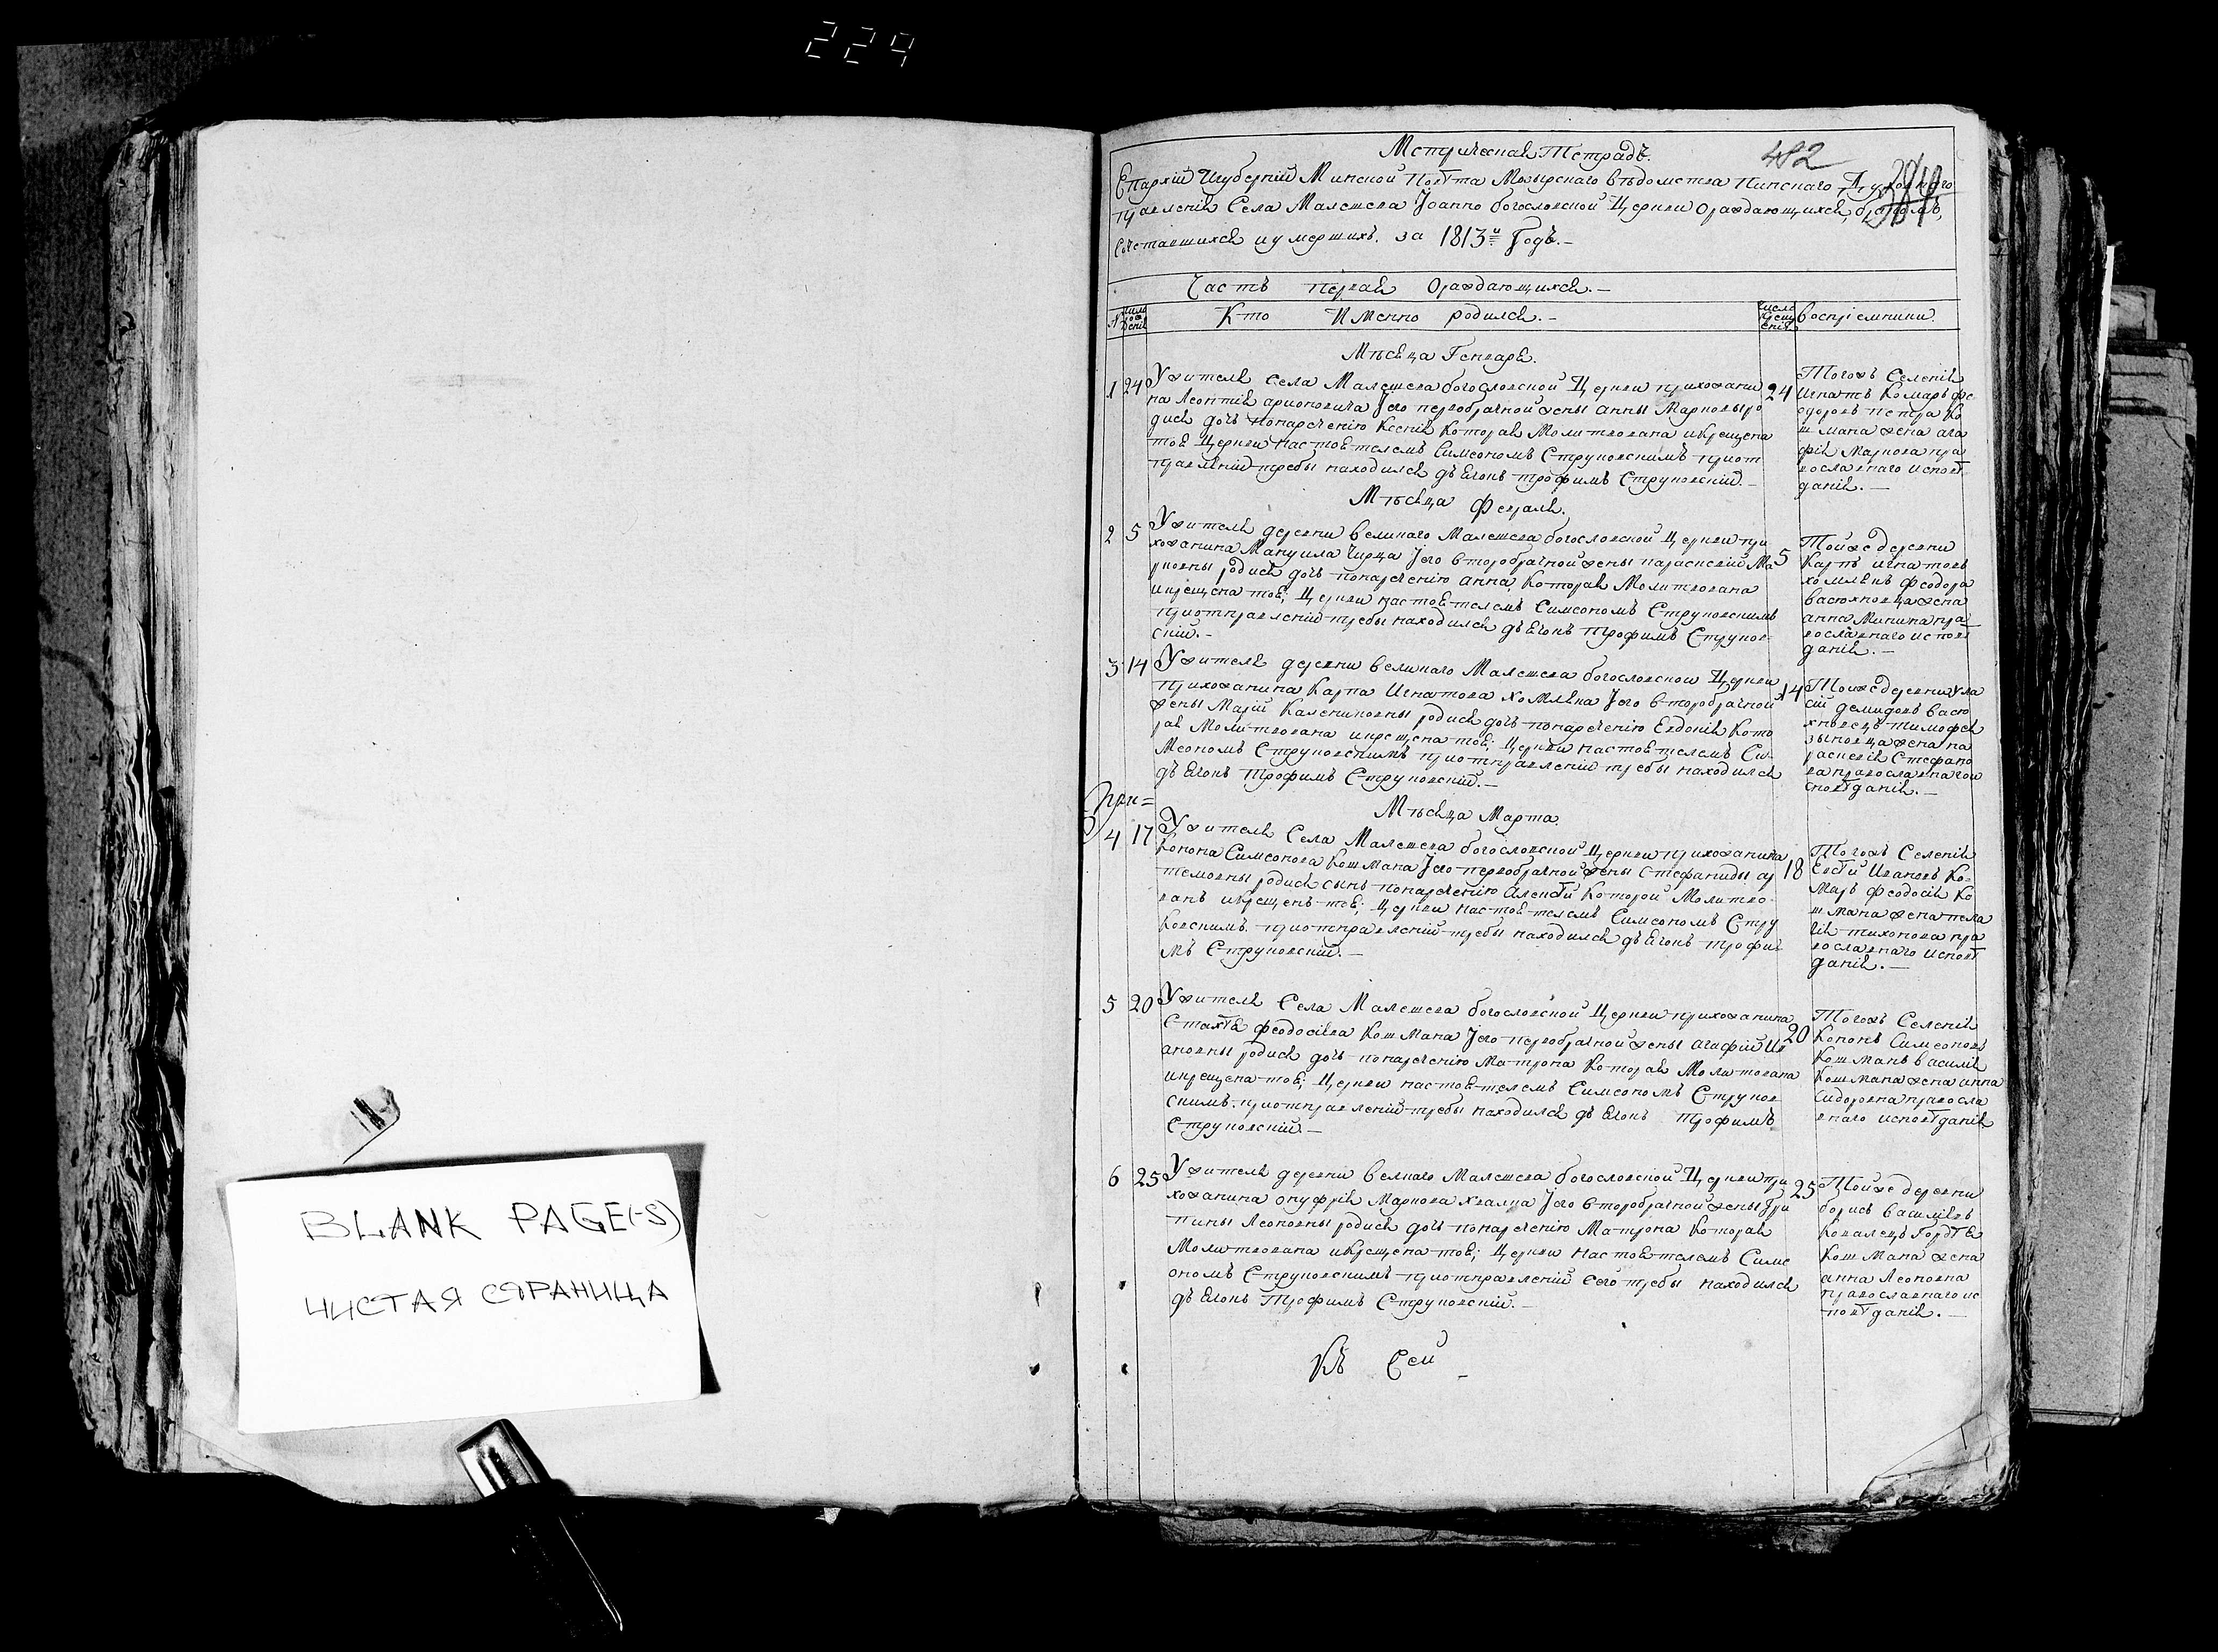 229
BLANK PAGE(-S)
ЧИСТАЯ СТРАНИЦА
Метрическая Тетрадь.
482
Епархіи Игуберніи Минской Повѣта Мозырскаго вѣдомства Пинскаго Духовнаго
правленія Села Малешева Іоанно богословской Церкви Ораждающихся, бракомъ,
Сочетавшихся иумершихъ. за 1813й Годъ.-
Часть первая Ораждающихся.-
Кто Именно родился.-
воспріемники.
Мѣсяца Генваря.
1 24 Ужителя села Малешева богословской Церкви прихожани 24
на Леонтія Его первобрачной жены анны Марковы ро
дися дочь понаречению Ксенія Которая Молитвована икрещена
тоя Церкви Настоятелемъ Симеономъ Струковскимъ приот
правленіи требы находился дьячокъ трофимъ Струковскій.-
Тогожъ Селенія
Игнатъ Комаръ фе
одоровъ петра Ко
шмана жена ага
фія Маркова пра
вославнаго исповѣ
данія.-
Мѣсяца Февраля.
2 5 Ужителя деревни великаго Малешева богословской Церкви при
хожанина Мануила Его второбрачной жены параскевии Ма 5
рковны родися дочь понаречению анна, Которая Молитвована
икрещена тоя; Церкви настоятелемъ Симеономъ Струковскимъ
приотправленіи требы находился дьячокъ Трофимъ Струков-
скій.-
Тойже деревни
Карпъ игнатовъ
хомякъ феодора
васюховца жена
анна Минина пра
вославнаго исповѣ
данія.-
3 14 Ужителя деревни великаго Малешева богословской Церкви
прихожанина Карпа Игнатова хомяка Его второбрачной 14
жены Маріи Калениковны родися дочь понаречению Евдокія Кото
рая Молитвована икрещена тоя; Церкви настоятелемъ Си-
меономъ Струковскимъ приотправленіи требы находился
дьячокъ Трофимъ Струковскій.-
Тойже деревни
демидовъ васю
ховецъ тимофея
жена па
раскевія Стефано
ва православнаго и
сповѣданія.-
Мѣсяца Марта.
4 17 Ужителя Села Малешева богословской Церкви прихожанина
Конона Симеонова Кошмана Его первобрачной жены Стефаниды ар 18
темовны родися сынъ понаречению Алексѣй Которой Молитво-
ванъ икрещенъ тоя; Церкви настоятелемъ Симеономъ Стру
ковскимъ. приотправленіи требы находился дьячокъ трофи-
мъ Струковскій.-
Тогожъ Селенія
Ивановъ Ко-
маръ феодосія Ко
шмана жена пела
гія тихонова пра
вославнаго исповѣ
данія.-
5 20 Ужителя Села Малешева богословской Церкви прихожанина
феодосіева Кошмана Его первобрачной жены агафіи Ив 20
ановны родися дочь понаречению Матрона Которая Молитвована
икрещена тоя; Церкви настоятелемъ Симеономъ Струков
скимъ. приотправленіи требы находился дьячокъ Трофимъ
Струковскій.-
Тогожъ Селенія
Кононъ Симеоновъ
Кошманъ василія
Кошмана жена анна
Сидоровна правосла
внаго исповѣданія
6 25 Ужителя деревни великаго Малешева богословской Церкви при
хожанина онуфрія Маркова Его второбрачной жены Гри 25
пины Леоновны родися дочь понаречению Матрона Которая
Молитвована икрещена тоя; Церкви настоятелемъ Симе
ономъ Струковскимъ приотправленіи сего требы находился
дьячокъ Трофимъ Струковскій.-
Тойже деревни
борисъ василіевъ
Ковалецъ Гордѣя
Кошмана жена
анна Леоновна
православнаго ис
повѣданія.-
Къ Сей